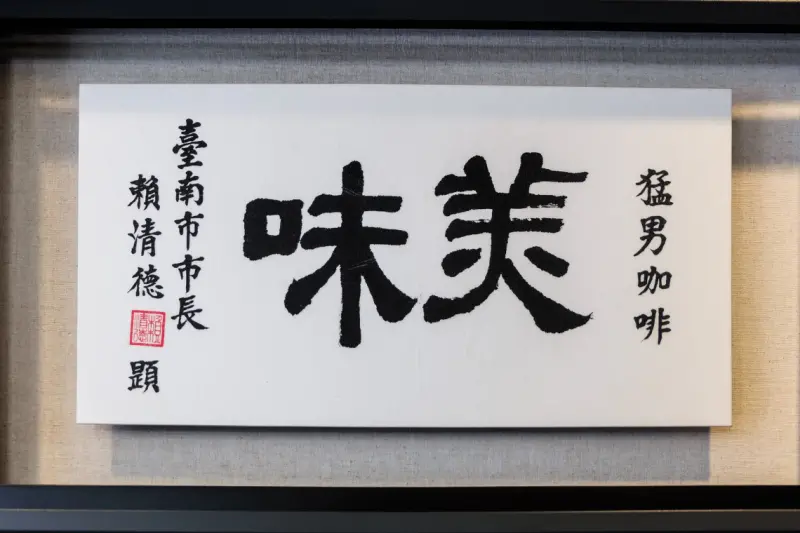 猛男咖啡
美味
臺南市市長
賴清德
顕